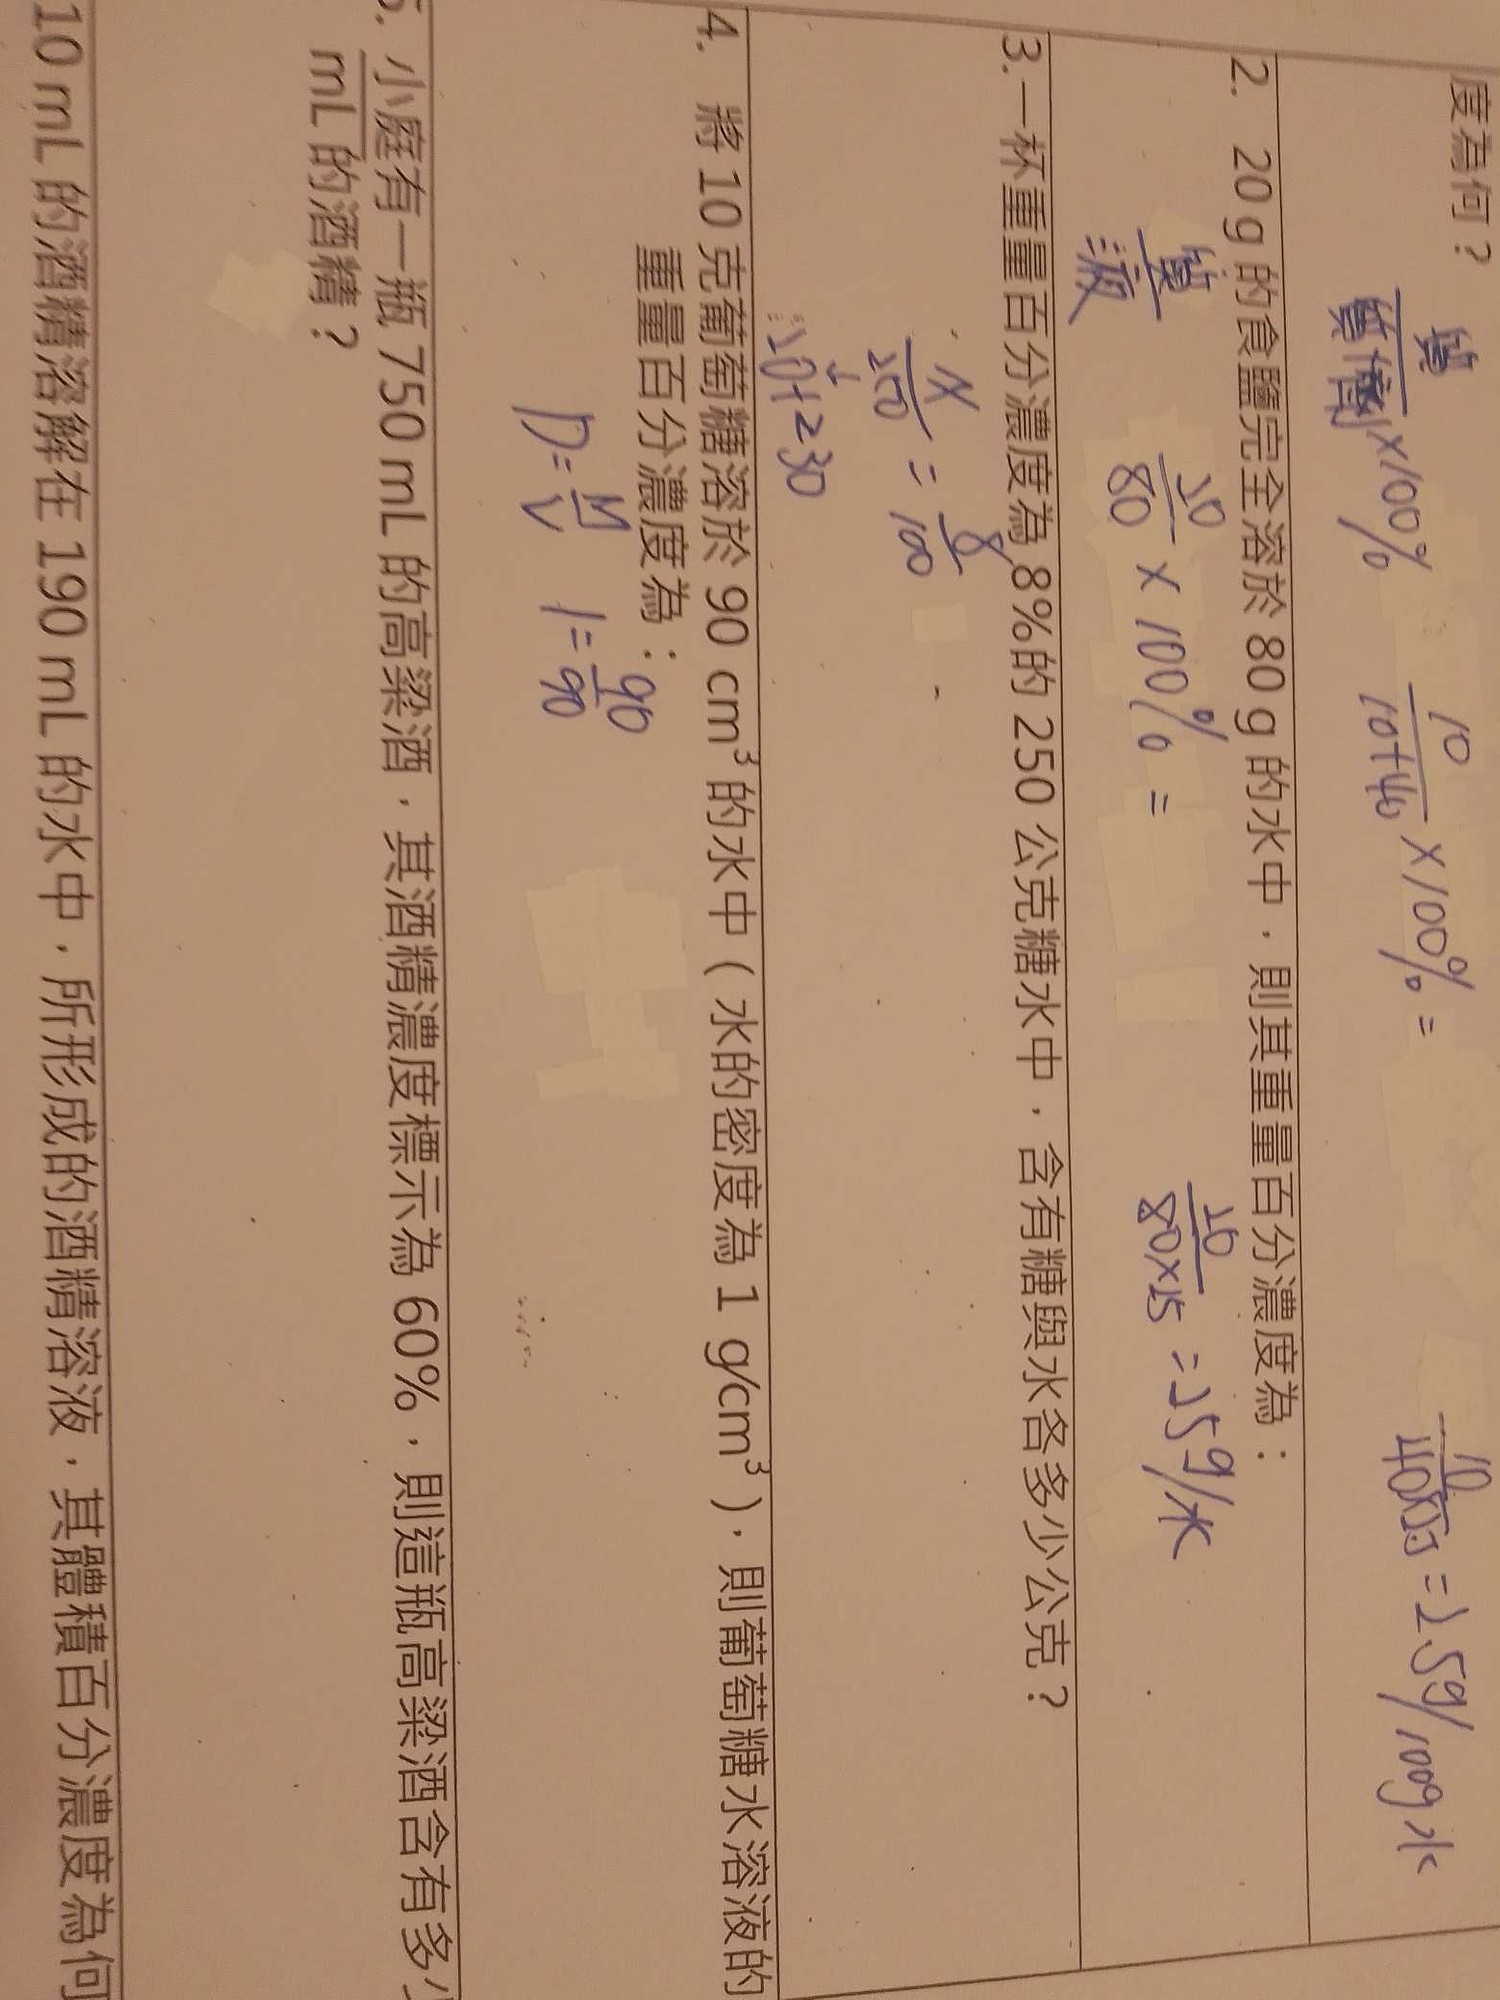 度為何？
質
質+劑 ×100%
10
10+40 ×100% =
10
= 25g/100g水
2. 20 g 的食鹽完全溶於 80 g 的水中，則其重量百分濃度為：
質
液
20
80 × 100% =
20
80×15 = 25g/水
3.一杯重量百分濃度為 8%的 250 公克糖水中，含有糖與水各多少公克？
x
250 =
8
100
↓
20+230
4. 將 10 克葡萄糖溶於 90 cm³ 的水中（水的密度為 1 g/cm³），則葡萄糖水溶液的
重量百分濃度為：
D=M/V 1=90/90
5. 小庭有一瓶 750 mL 的高粱酒，其酒精濃度標示為 60%，則這瓶高粱酒含有多
mL 的酒精？
10 mL 的酒精溶解在 190 mL 的水中，所形成的酒精溶液，其體積百分濃度為何